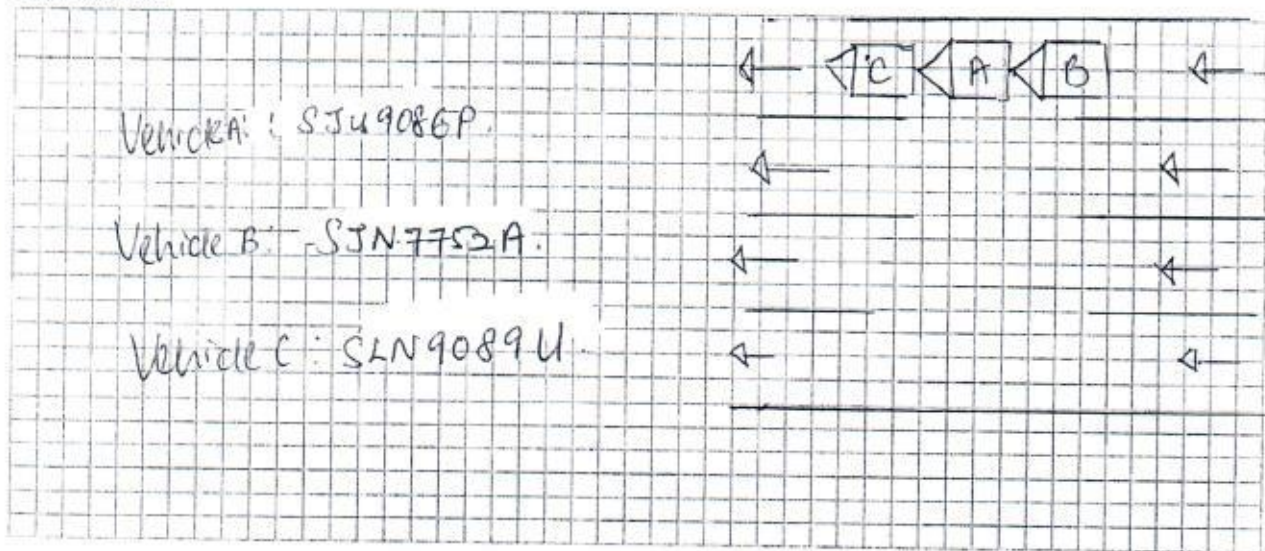 C A B
Vehicle A: : SJU9086P.
Vehicle B: SJN7752A.
Vehicle C : SLN9089U.